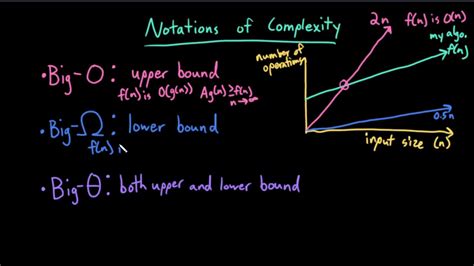 Notations of Complexity
• Big-O: upper bound
f(n) is O(g(n)) Ag(n) ≥ f(n)
n→∞
• Big-Ω: lower bound
f(n) i
• Big-θ: both upper and lower bound
2n
f(n) is O(n)
my algo.
f(n)
number of
operations
0.5n
input size (n)